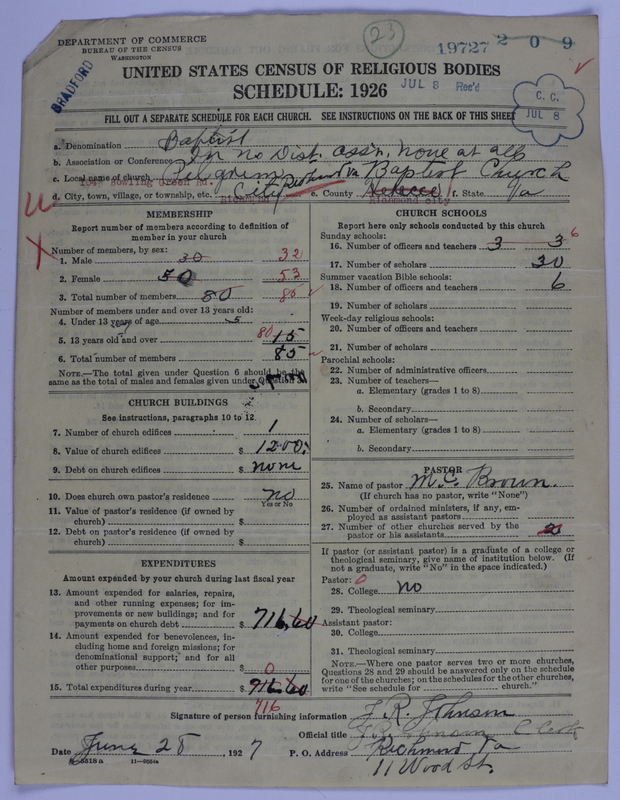 23
19727 209
DEPARTMENT OF COMMERCE
BUREAU OF THE CENSUS
WASHINGTON
BRADFORD
UNITED STATES CENSUS OF RELIGIOUS BODIES
SCHEDULE: 1926
JUL 8 Rec'd
C. C.
JUL 8
FILL OUT A SEPARATE SCHEDULE FOR EACH CHURCH. SEE INSTRUCTIONS ON THE BACK OF THIS SHEET
a. Denomination Baptist
b. Association or Conference In no Dist. Ass'n, none at all
c. Local name of church Pilgrim Baptist Church
Bowling Green Rd. Richmond Va
d. City, town, village, or township, etc. City Richmond e. County Henrico Richmond City f. State Va
MEMBERSHIP
Report number of members according to definition of
member in your church
Number of members, by sex:
1. Male 30 32
2. Female 50 53
3. Total number of members 80 85
Number of members under and over 13 years old:
4. Under 13 years of age 5
5. 13 years old and over 80 15
6. Total number of members 85
NOTE.—The total given under Question 6 should be the
same as the total of males and females given under Question 3.
CHURCH BUILDINGS
See instructions, paragraphs 10 to 12.
7. Number of church edifices 1
8. Value of church edifices $ 1200.
9. Debt on church edifices $ none
10. Does church own pastor's residence no
Yes or No
11. Value of pastor's residence (if owned by
church) $
12. Debt on pastor's residence (if owned by
church) $
EXPENDITURES
Amount expended by your church during last fiscal year
13. Amount expended for salaries, repairs,
and other running expenses; for im-
provements or new buildings; and for
payments on church debt $ 716.60
14. Amount expended for benevolences, in-
cluding home and foreign missions; for
denominational support; and for all
other purposes $ 0
15. Total expenditures during year $ 716.60
716
CHURCH SCHOOLS
Report here only schools conducted by this church
Sunday schools:
16. Number of officers and teachers 3 3 6
17. Number of scholars 30
Summer vacation Bible schools:
18. Number of officers and teachers 6
19. Number of scholars
Week-day religious schools:
20. Number of officers and teachers
21. Number of scholars
Parochial schools:
22. Number of administrative officers
23. Number of teachers—
a. Elementary (grades 1 to 8)
b. Secondary
24. Number of scholars—
a. Elementary (grades 1 to 8)
b. Secondary
PASTOR
25. Name of pastor M. C. Brown.
(If church has no pastor, write "None")
26. Number of ordained ministers, if any, em-
ployed as assistant pastors
27. Number of other churches served by the
pastor or his assistants 2
If pastor (or assistant pastor) is a graduate of a college or
theological seminary, give name of institution below. (If
not a graduate, write "No" in the space indicated.)
Pastor: 0
28. College no
29. Theological seminary
Assistant pastor:
30. College
31. Theological seminary
NOTE.—Where one pastor serves two or more churches,
Questions 28 and 29 should be answered only on the schedule
for one of the churches; on the schedules for the other churches,
write "See schedule for church."
Signature of person furnishing information J. R. Johnson
Official title Johnson C Clerk
Date June 28, 1927 P. O. Address Richmond Va
8-5318 a 11-9054a 11 Wood St.